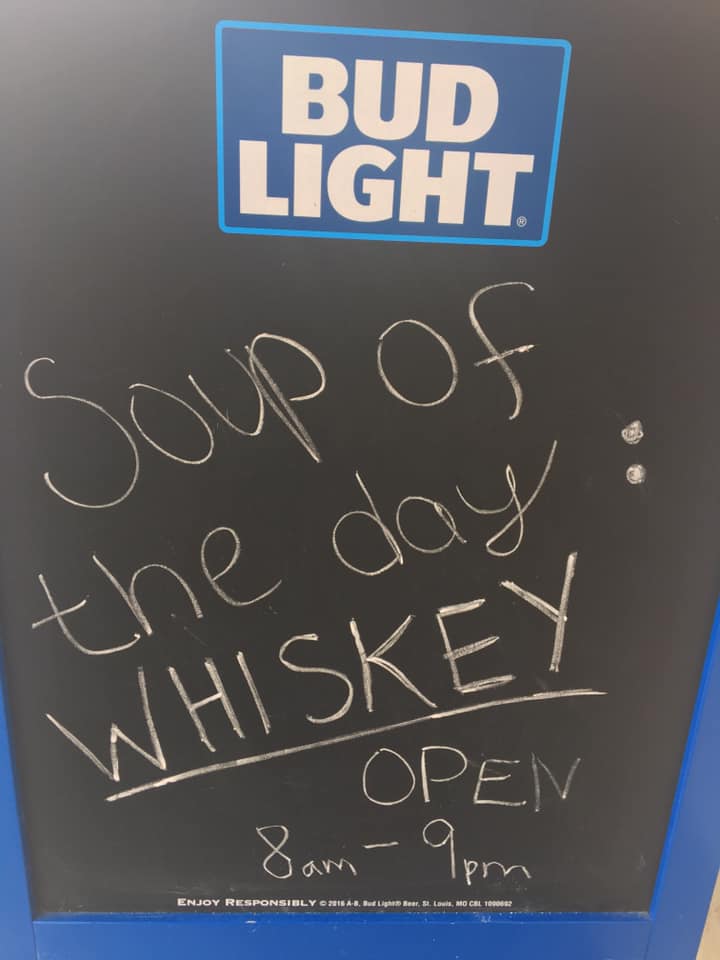 BUD
LIGHT®
Soup of
the day :
WHISKEY
OPEN
8am - 9pm
ENJOY RESPONSIBLY © 2016 A-B, Bud Light® Beer, St. Louis, MO CBL 1090692